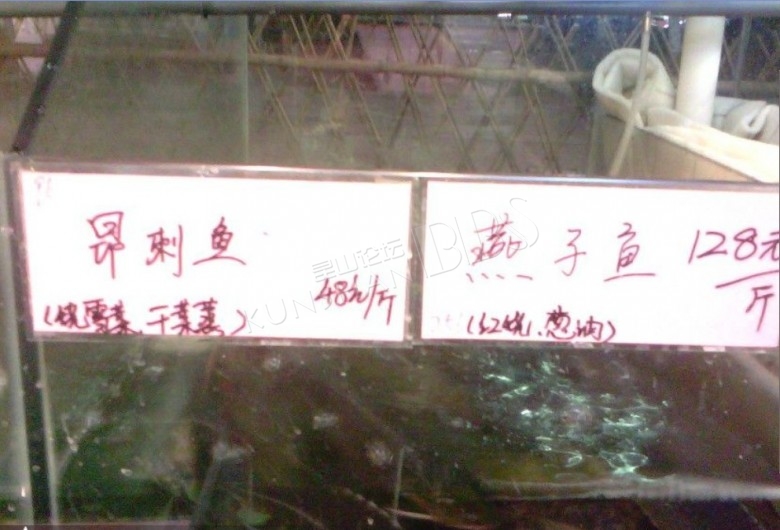 昂刺鱼
48元/斤
(烧雪菜、干菜蒸)
燕子鱼
128元/斤
(红烧、葱油)
昆山论坛
KUNSHAN BBS